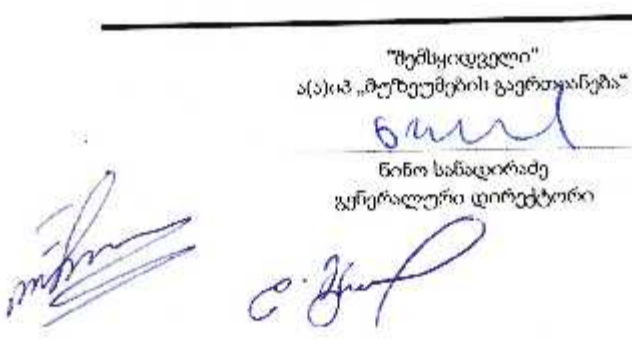 "შემსყიდველი"
ა(ა)იპ „მუზეუმების გაერთიანება“
ნინო სანადირაძე
გენერალური დირექტორი